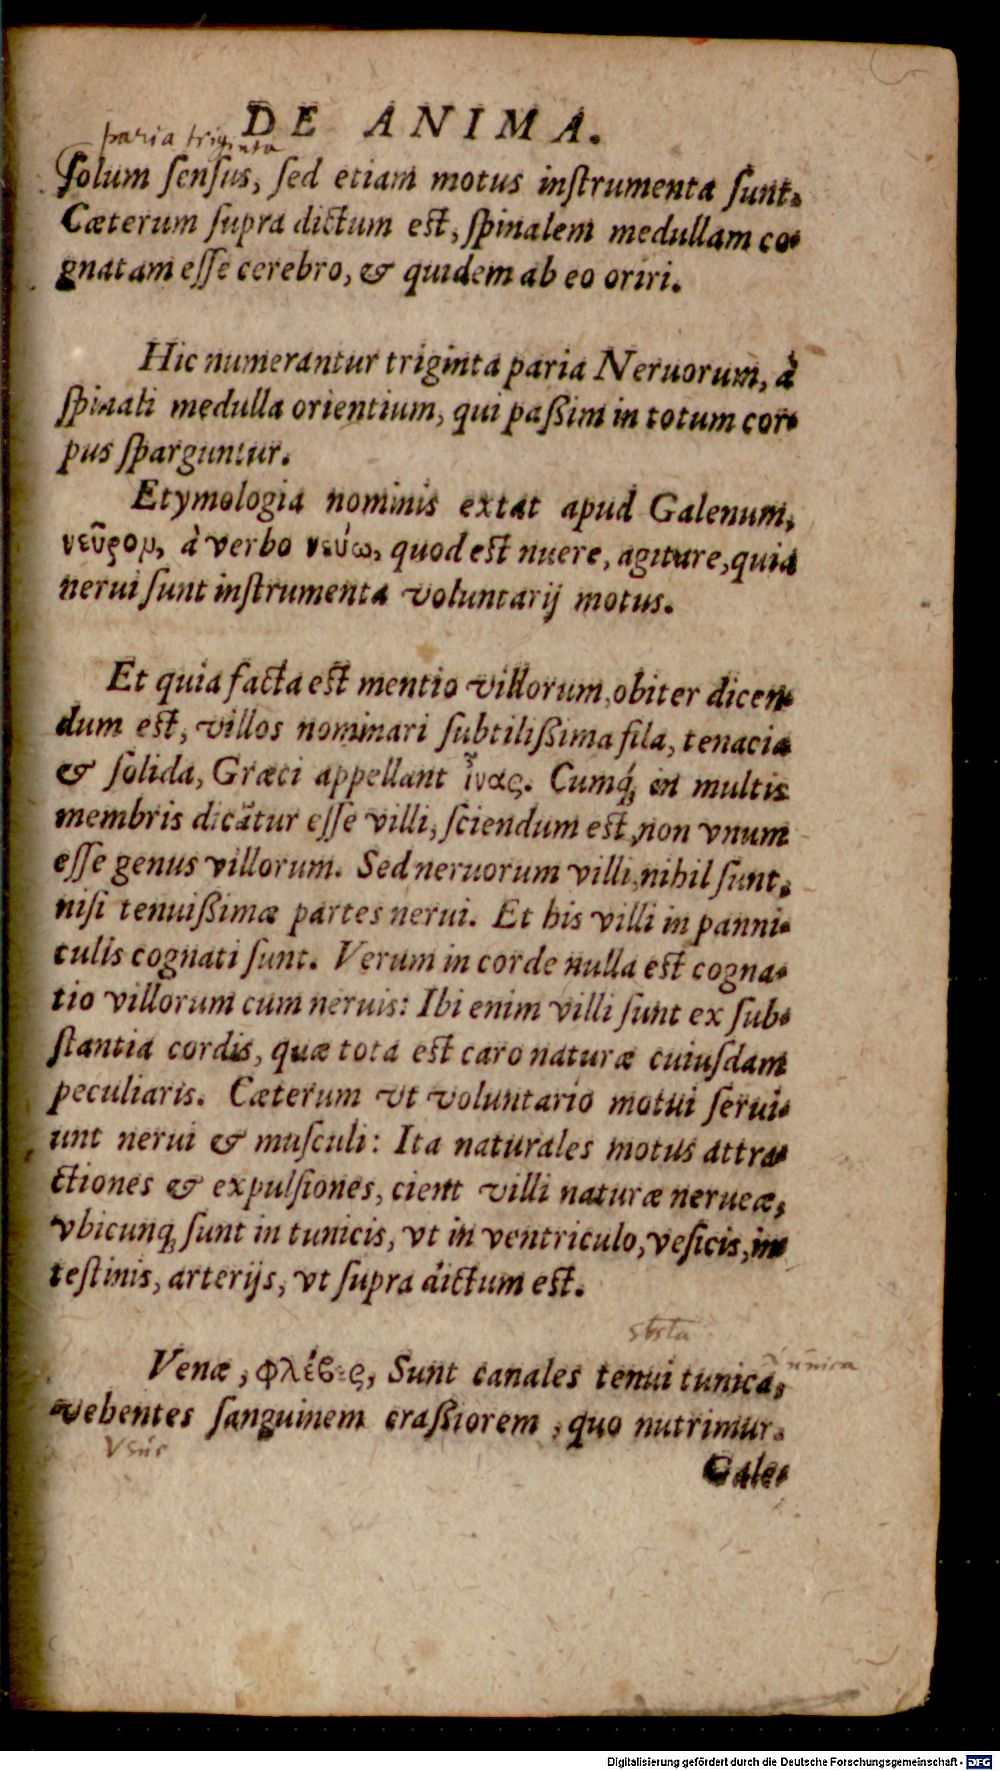 DE ANIMA.
paria triginta
ſolum ſenſus, ſed etiam motus inſtrumenta ſunt.
Cæterum ſupra dictum eſt, ſpinalem medullam co-
gnatam eſſe cerebro, & quidem ab eo oriri.
Hic numerantur triginta paria Neruorum, à
ſpinali medulla orientium, qui paßim in totum cor-
pus ſparguntur.
Etymologia nominis extat apud Galenum,
νεῦρον, à verbo νεύω, quod eſt nuere, agitare, quia
nerui ſunt inſtrumenta voluntarij motus.
Et quia facta eſt mentio villorum, obiter dicen-
dum eſt, villos nominari ſubtilißima fila, tenacia
& ſolida, Græci appellant ἶνας. Cumq́; in multis
membris dicãtur eſſe villi, ſciendum eſt, non vnum
eſſe genus villorum. Sed neruorum villi, nihil ſunt,
niſi tenuißimæ partes nerui. Et his villi in panni-
culis cognati ſunt. Verum in corde nulla eſt cogna-
tio villorum cum neruis: Ibi enim villi ſunt ex ſub-
ſtantia cordis, quæ tota eſt caro naturæ cuiuſdam
peculiaris. Cæterum vt voluntario motui ſerui-
unt nerui & muſculi: Ita naturales motus attra-
ctiones & expulſiones, cient villi naturæ nerueæ,
vbicunq; ſunt in tunicis, vt in ventriculo, veſicis, in-
teſtinis, arterijs, vt ſupra dictum eſt.
Venæ, φλέβες, Sunt canales tenui tunica,
vehentes ſanguinem craßiorem, quo nutrimur.
Gale-
Digitalisierung gefördert durch die Deutsche Forschungsgemeinschaft - DFG